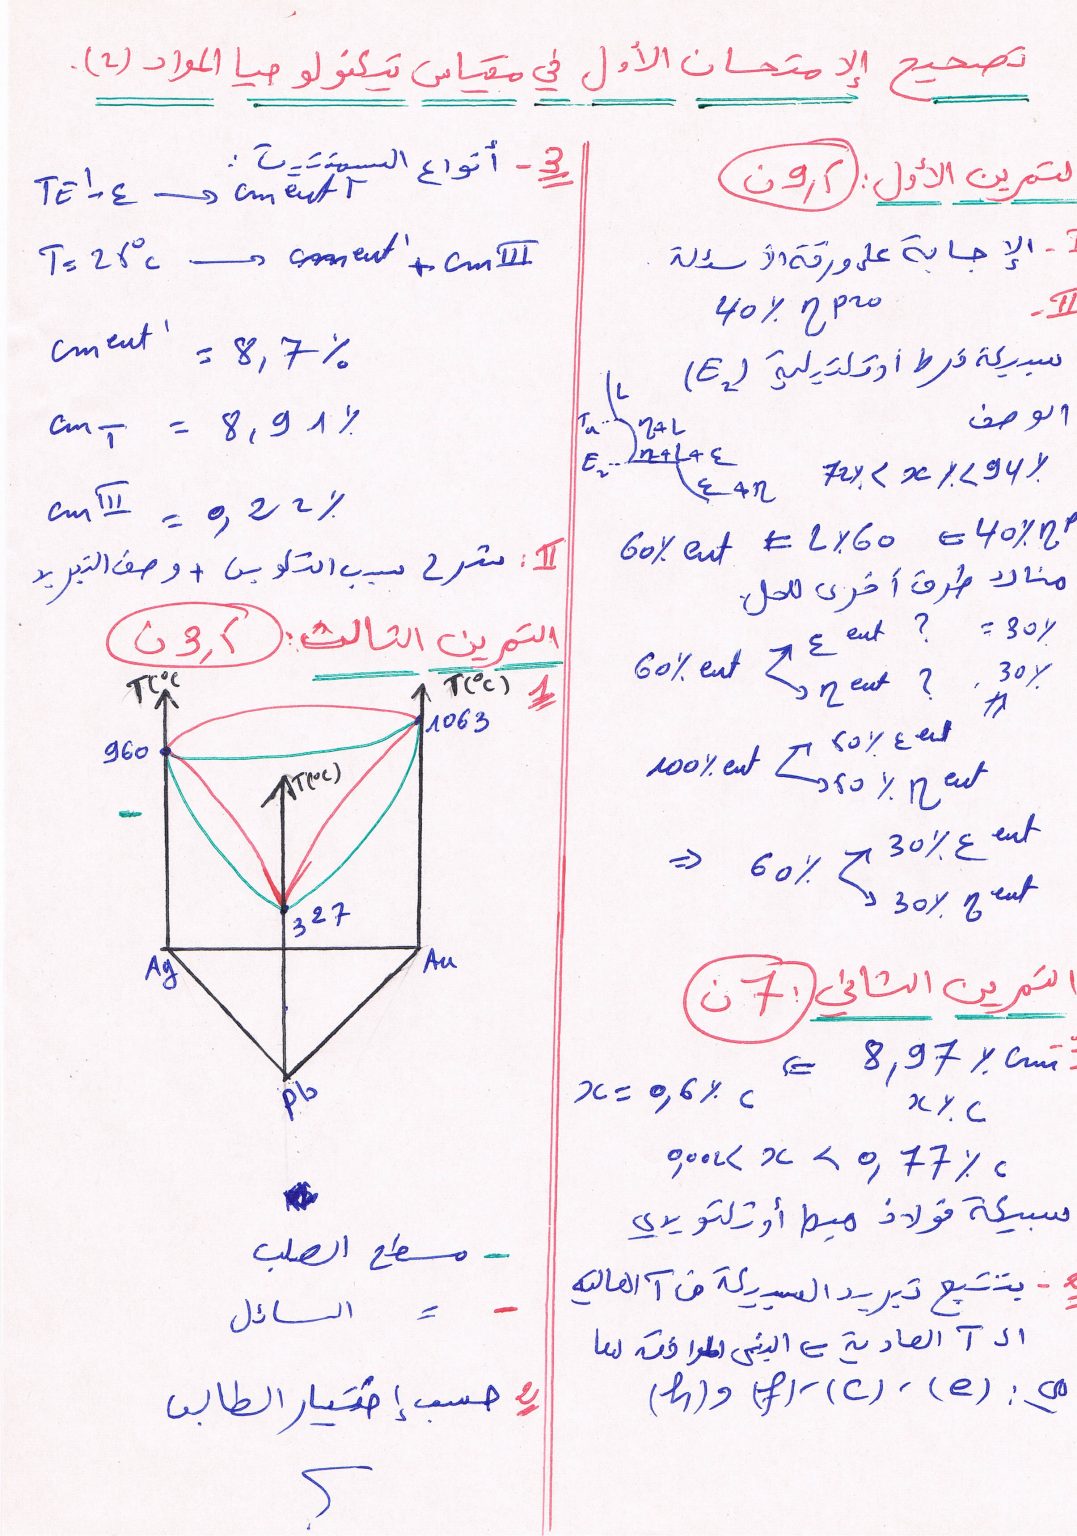 تصحيح الإمتحان الأول في مقياس تيكنولوجيا المواد (2).
التمرين الأول: 9,5 ن
I - الإجابة على ورقة الأسئلة
II -
40% η pro
سبيكة فرط أوتكتيكية (E2)
الوصف
L
Tu
η+L
E2
η+L+ε
ε+η
72% < x% < 94%
60% eut = 2×60 = 40% ηp
هناك طرق أخرى للحل.
60% eut
ε eut ? = 30%
η eut ? 30%
100% eut
50% ε eut
50% η eut
=> 60%
30% ε eut
30% η eut
التمرين الثاني: 7 ن
8,97 % cmT =>
x = 0,6% c
x% c
0,002 < x < 0,77% c
سبيكة فولاذ هيبو أوتكتويدي
2 - نتتبع تبريد السبيكة من T العالية
الى T العادية البنى الموافقة لها
هي: (e) - (c) - (f) و (h)
3 - أنواع السمنتيت:
TE1-ε → cment 1
T = 25°c → cment' + cm III
cment' = 8,7%
cmT = 8,91%
cm III = 0,22%
II: شرح سبب التكوين + وصف التبريد
التمرين الثالث: 3,5 ن
1
T(°c
T(°c)
1063
960
T(°c)
327
Ag
Au
Pb
- مسطح الصلب
- = السائل
2 حسب إختيار الطالب